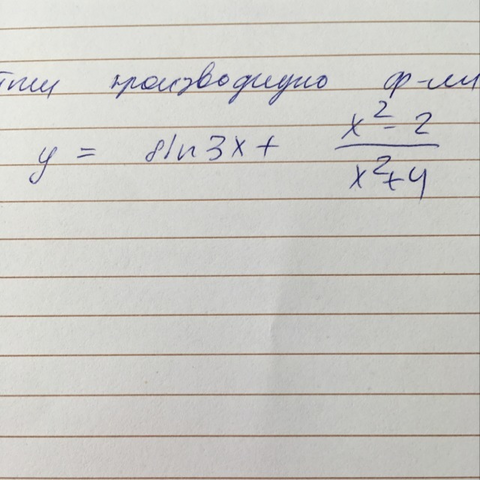 йти производную ф-ли
y = sin3x + \frac{x^2 - 2}{x^2 + 4}